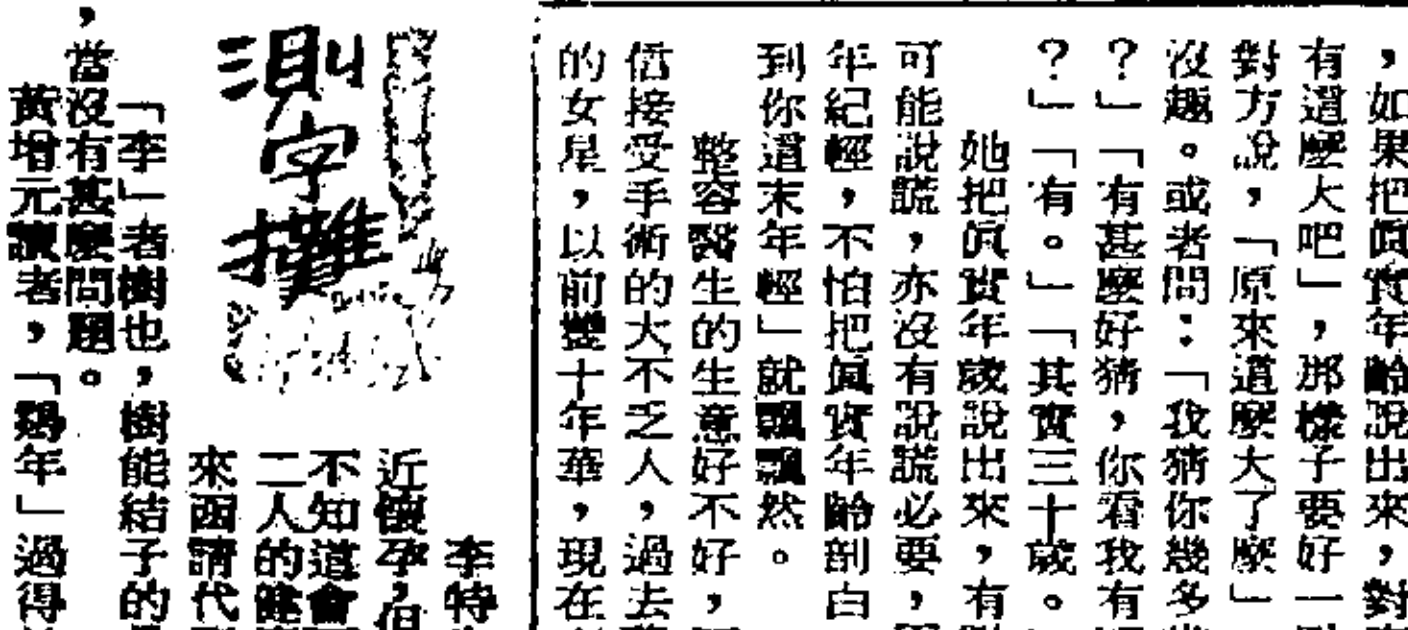 ，如果把眞實年齡說出來，對
有這麼大吧」，那樣子要好一
對方說，「原來這麼大了麼」
沒趣。或者問：「我猜你幾多
？」「有甚麼好猜，你看我有
？」「有。」「其實三十歲。
她把眞實年歲說出來，有
可能說謊，亦沒有說謊必要，
年紀輕，不怕把眞實年齡剖白
到你這末年輕」就飄飄然。
整容醫生的生意好不好，
信接受手術的大不乏人，過去
的女星，以前雙十年華，現在
測字攤
李特
近懷孕，但
不知道會
二人的健
來函請代
「李」者樹也，樹能結子的
，當沒有甚麼問題。
黃增元讀者，「鷄年」過得